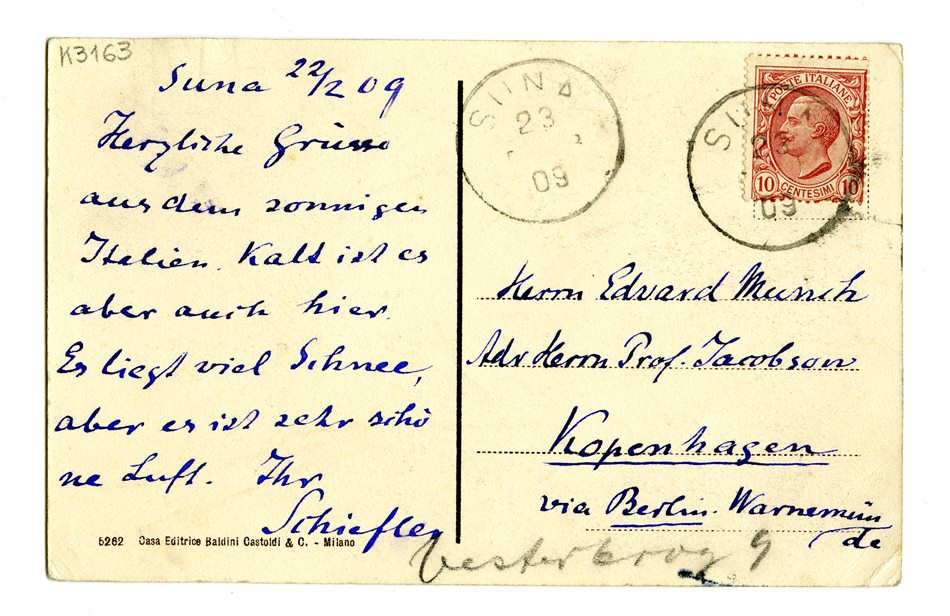 K3163
Suna 22/2 09
Herzliche Grüsse
aus dem sonnigen
Italien. Kalt ist es
aber auch hier.
Es liegt viel Schnee,
aber es ist sehr schö
ne Luft. Ihr
Schiefler
5262 Casa Editrice Baldini Castoldi & C. - Milano
SUNA
23
09
POSTE ITALIANE
10 CENTESIMI 10
SUNA
23
09
Herrn Edvard Munch
Adr Herrn Prof. Jacobson
Kopenhagen
via Berlin-Warnemün
de
Vesterbrog 9